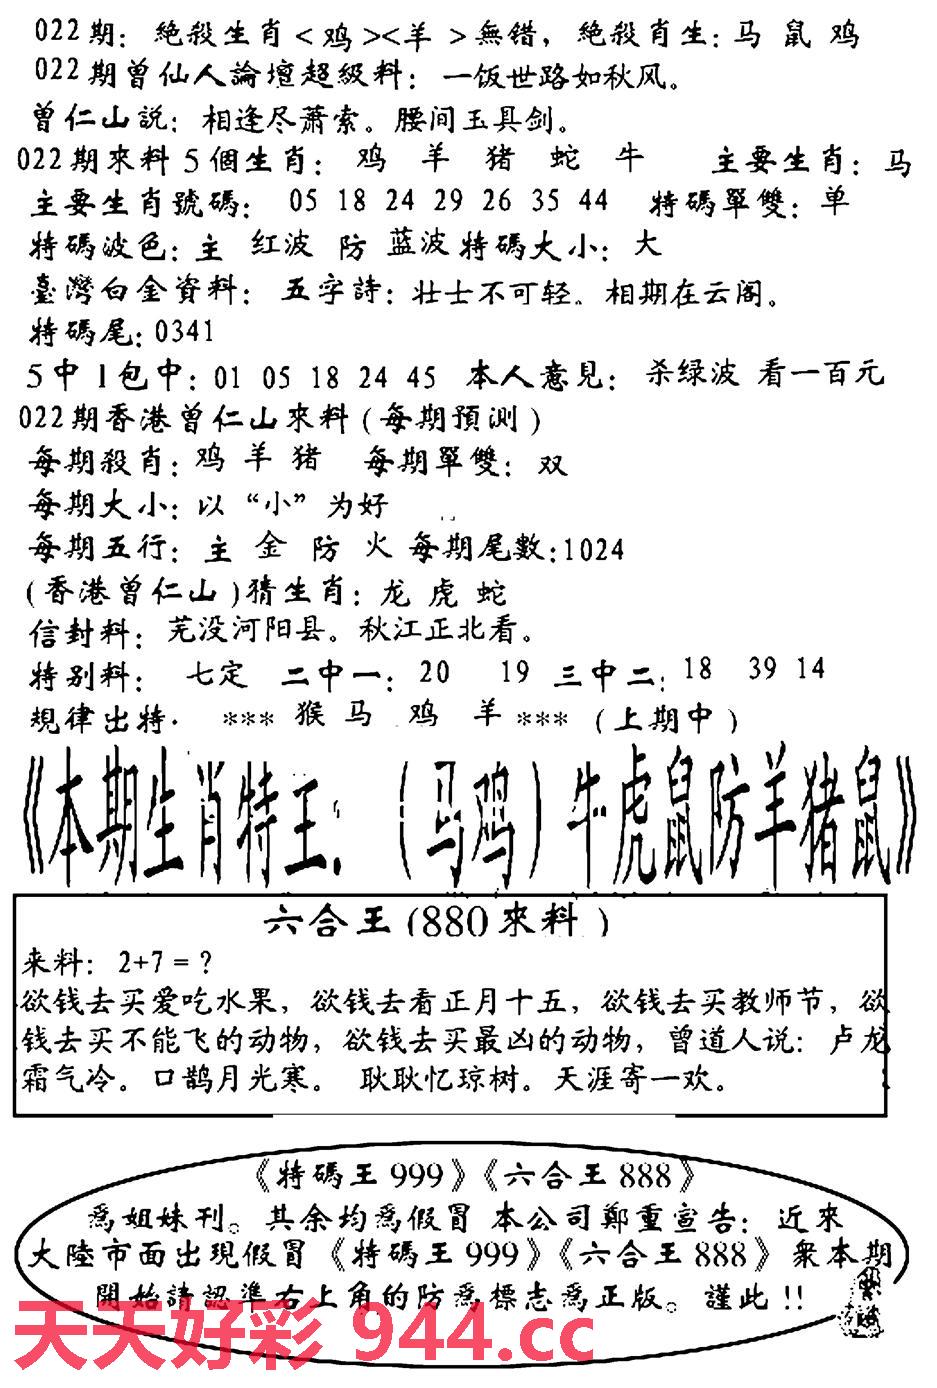 022期：絶殺生肖<鸡><羊>無错，絶殺肖生：马 鼠 鸡
022期曾仙人論壇超級料：一饭世路如秋风。
曾仁山説：相逢尽萧索。腰间玉具剑。
022期來料5個生肖：鸡 羊 猪 蛇 牛 主要生肖：马
主要生肖號碼：05 18 24 29 26 35 44 特碼單雙：单
特碼波色：主 红波 防 蓝波 特碼大小：大
臺灣白金資料：五字詩：壮士不可轻。相期在云阁。
特碼尾：0341
5中1包中：01 05 18 24 45 本人意見：杀绿波 看一百元
022期香港曾仁山來料(每期預测)
每期殺肖：鸡 羊 猪 每期單雙：双
每期大小：以“小”为好
每期五行：主 金 防 火 每期尾數：1024
(香港曾仁山)猜生肖：龙 虎 蛇
信封料：芜没河阳县。秋江正北看。
特别料：七定 二中一：20 19 三中二：18 39 14
規律出特· *** 猴 马 鸡 羊 *** (上期中)
《本期生肖特王：(马鸡)牛虎鼠防羊猪鼠》
六合王(880來料)
来料：2+7=？
欲钱去买爱吃水果，欲钱去看正月十五，欲钱去买教师节，欲
钱去买不能飞的动物，欲钱去买最凶的动物，曾道人说：卢龙
霜气冷。口鹊月光寒。 耿耿忆琼树。天涯寄一欢。
《特碼王999》《六合王888》
爲姐妹刊。其余均爲假冒 本公司鄭重宣告：近來
大陸市面出現假冒《特碼王999》《六合王888》衆本期
開始請認準右上角的防爲標志爲正版。謹此!!
天天好彩 944.cc